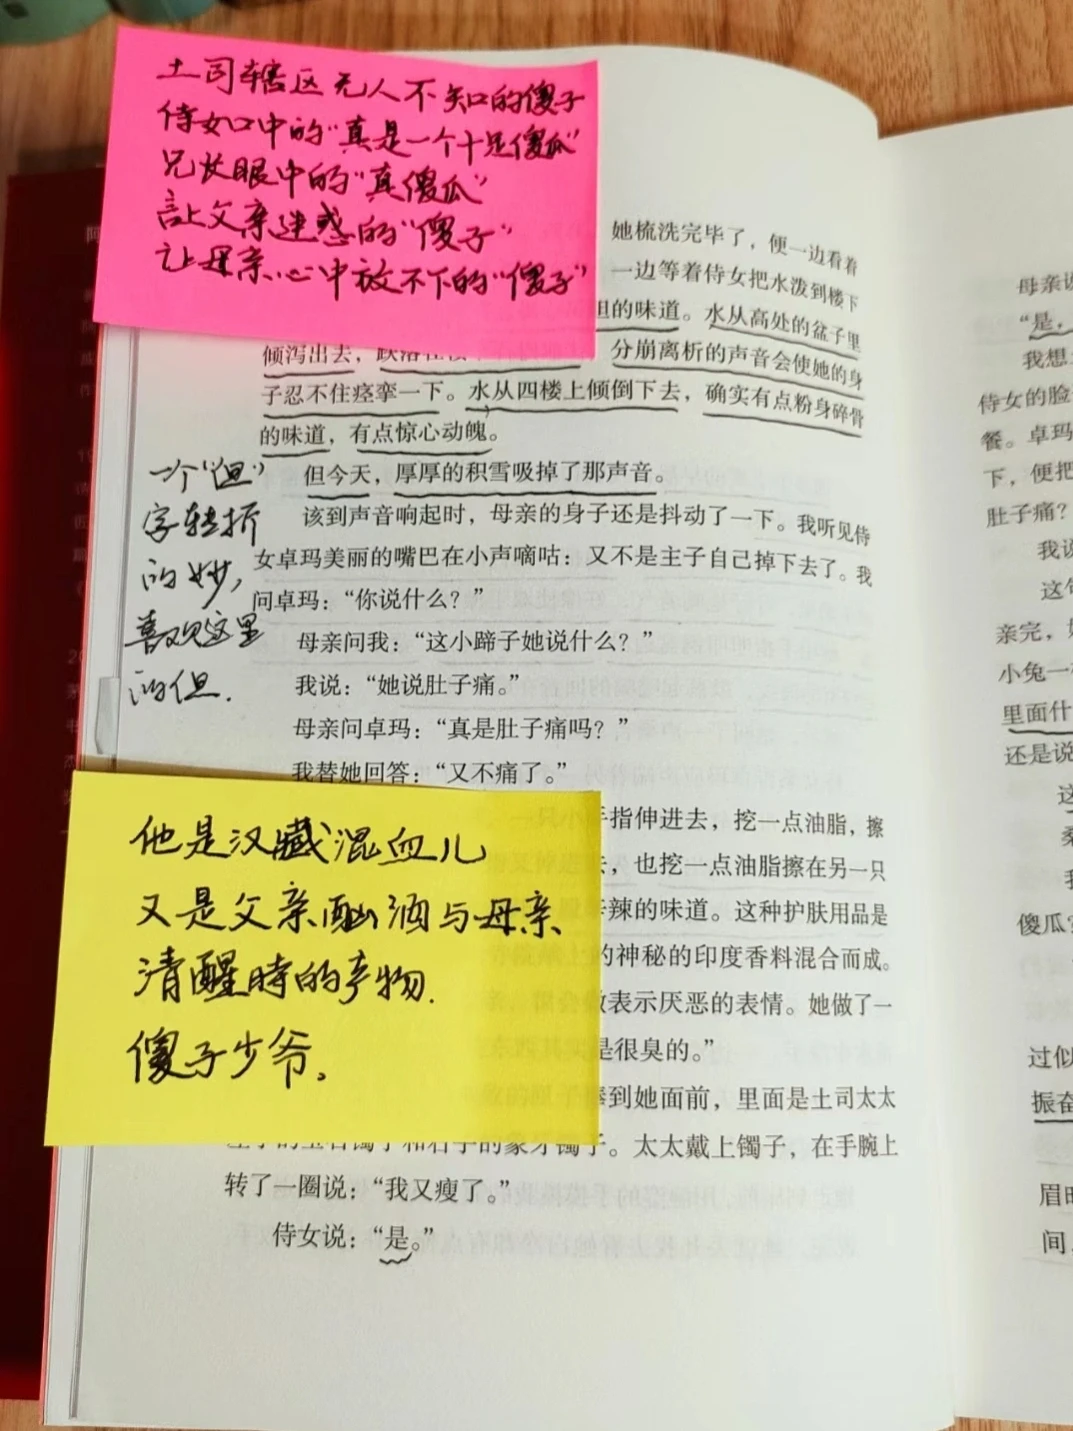 土司辖区无人不知的傻子
侍女口中的"真是一个十足傻瓜"
兄长眼中的"真傻瓜"
让父亲迷惑的"傻子"
让母亲心中放不下的"傻子"
她梳洗完毕了，便一边看着
一边等着侍女把水泼到楼下
的味道。水从高处的盆子里
倾泻出去，跌落在
分崩离析的声音会使她的身
子忍不住痉挛一下。水从四楼上倾倒下去，确实有点粉身碎骨
的味道，有点惊心动魄。
但今天，厚厚的积雪吸掉了那声音。
该到声音响起时，母亲的身子还是抖动了一下。我听见侍
女卓玛美丽的嘴巴在小声嘀咕：又不是主子自己掉下去了。我
问卓玛：“你说什么？”
母亲问我：“这小蹄子她说什么？”
我说：“她说肚子痛。”
母亲问卓玛：“真是肚子痛吗？”
我替她回答：“又不痛了。”
一个"但"
字转折
的妙，
喜欢这里
的但.
他是汉藏混血儿
又是父亲酗酒与母亲
清醒時的产物.
傻子少爷。
手指伸进去，挖一点油脂，擦
，也挖一点油脂擦在另一只
辣的味道。这种护肤用品是
的神秘的印度香料混合而成。
表示厌恶的表情。她做了一
是很臭的。”
到她面前，里面是土司太太
手的玉石镯子和右手的象牙镯子。太太戴上镯子，在手腕上
转了一圈说：“我又瘦了。”
侍女说：“是。”
母亲说
“是，
我想
侍女的脸
餐。卓玛
下，便把
肚子痛？
我说
这句
亲完，
小兔一
里面什
还是说
这
我
傻瓜
过似
振奋
间，